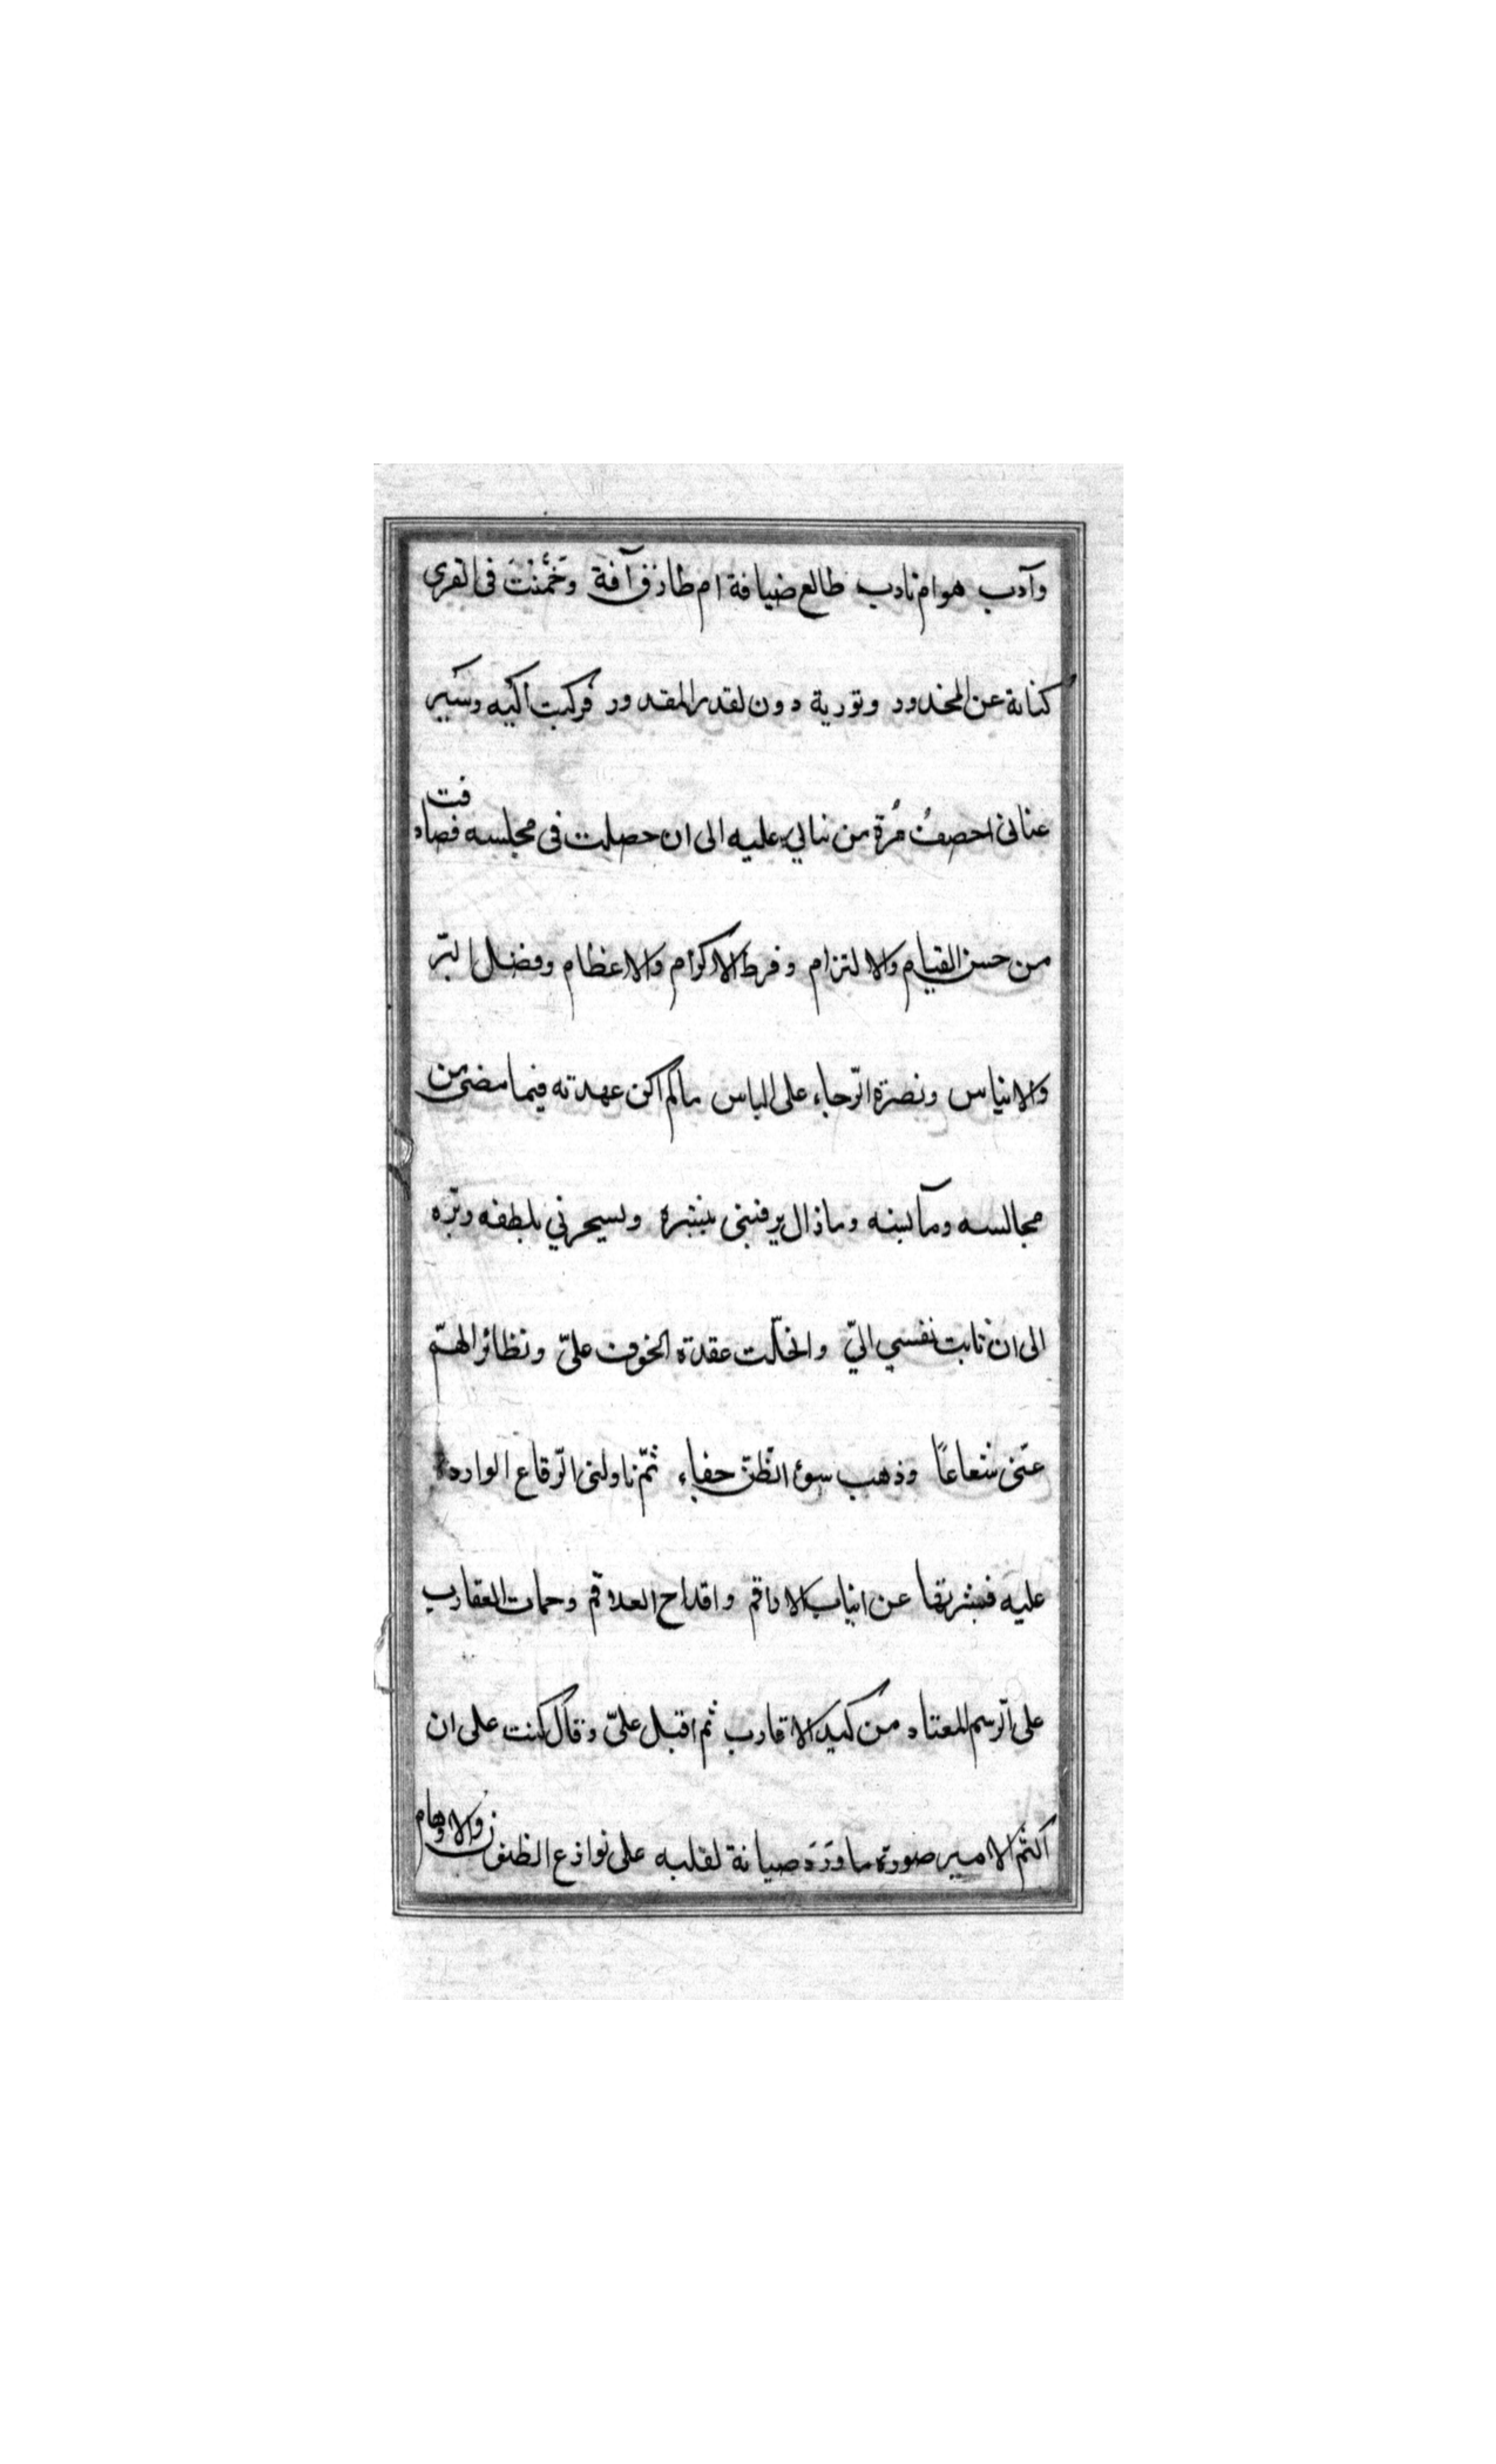 وآدب هو ام نادب طالع ضيافة ام طارق آفة وتخمنت فى القرى
كناية عن المحذور وتورية دون لقدر المقدور فركبت اليه وسير
عنانى احصف مرة من نيابى عليه الى ان حصلت فى مجلسه فصادفت
من حسن القيام والالتزام وفرط الاكرام والاعظام وفضل البرّ
والايناس ونصرة الرّجاء على الياس ما لم اكن عهدته فيما مضى من
مجالسه ومآنسه وما زال يرقينى ببشره ويسحرني بلطفه وبرّه
الى ان ثابت نفسي اليّ وانحلّت عقدة الخوف علىّ وتطائر الهمّ
عنّى شعاعًا وذهب سوء الظنّ جفاء ثمّ ناولنى الرّقاع الواردة
عليه فنشرتها عن انياب الاراقم واقداح العلاقم وحمات العقارب
على الرّسم المعتاد من كيد الاقارب ثم اقبل علىّ وقال كنت على ان
اكتم الامير صورة ما وَرَدَ صيانة لقلبه على نوازع الظنون والاوهام